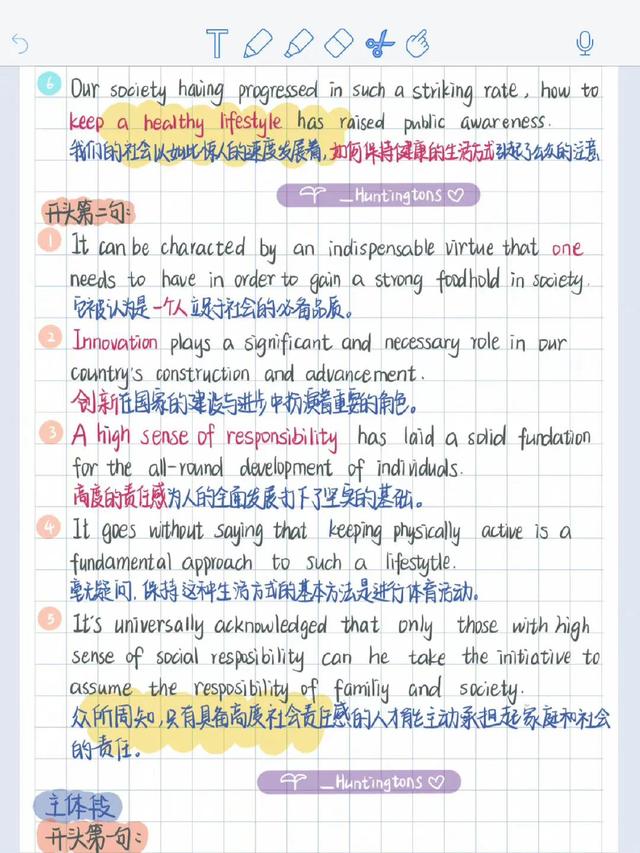 6 Our society having progressed in such a striking rate, how to
keep a healthy lifestyle has raised public awareness.
我们的社会以如此惊人的速度发展着,如何保持健康的生活方式引起了公众的注意
_Huntingtons
开头第二句:
1 It can be characted by an indispensable virtue that one
needs to have in order to gain a strong foodhold in society.
它被认为是一个人立足于社会的必备品质。
2 Innovation plays a significant and necessary role in our
country's construction and advancement.
创新在国家的建设与进步中扮演着重要的角色。
3 A high sense of responsibility has laid a solid fundation
for the all-round development of individuals.
高度的责任感为人的全面发展打下了坚实的基础。
4 It goes without saying that keeping physically active is a
fundamental approach to such a lifestytle.
毫无疑问,保持这种生活方式的基本方法是进行体育活动。
5 It's universally acknowledged that only those with high
sense of social resposibility can he take the initiative to
assume the resposibility of familiy and society.
众所周知,只有具备高度社会责任感的人才能主动承担起家庭和社会
的责任。
_Huntingtons
主体段
开头第一句: